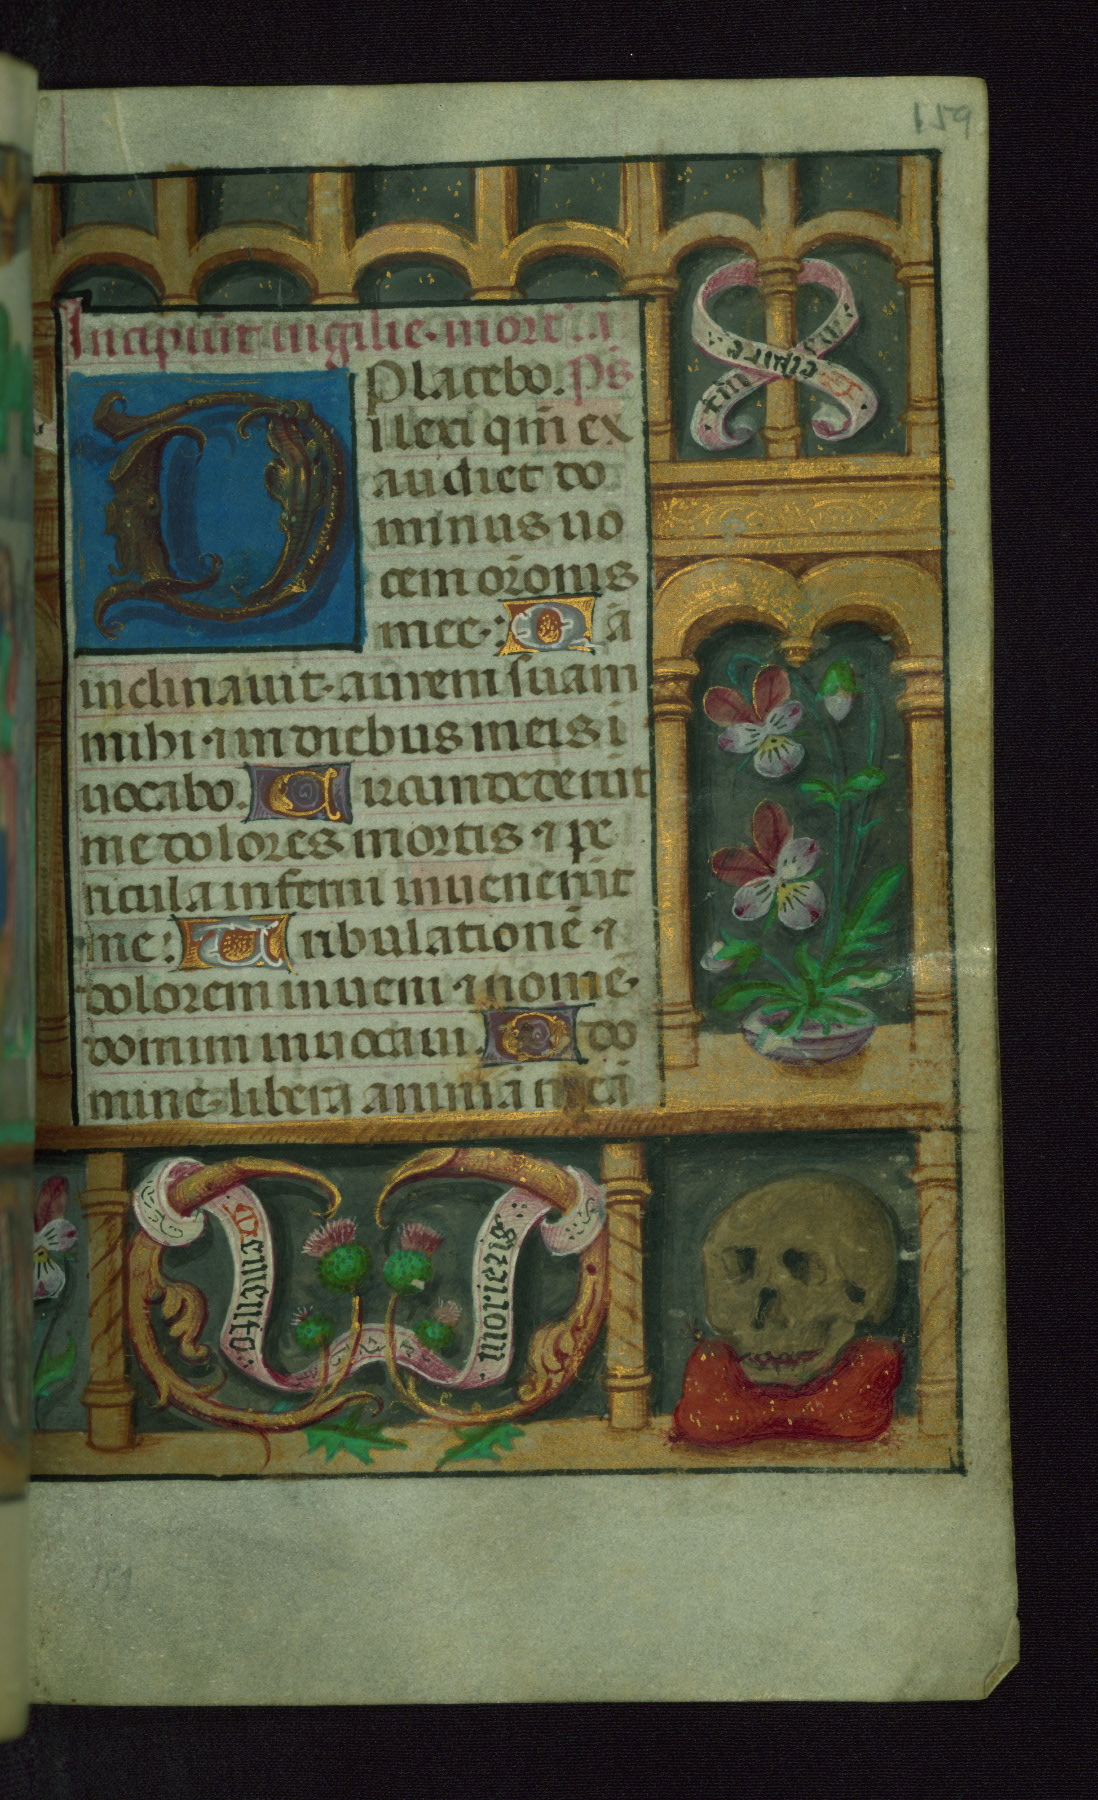 159
Incipiūt uigilie mort
Placebo. Ps
Dilexi qm̄ ex
audiet do
minus uo
cem or̄onis
mee: Q ā
inclinauit aurem suam
mihi ⁊ in diebus meis ī
uocabo. Circundederūt
me dolores mortis ⁊ pe
ricula inferni inuenerūt
me: Tribulationē ⁊
dolorem inueni ⁊ nomē
domini inuocaui. O do
mine libera animā meā
Memento
morieris
159